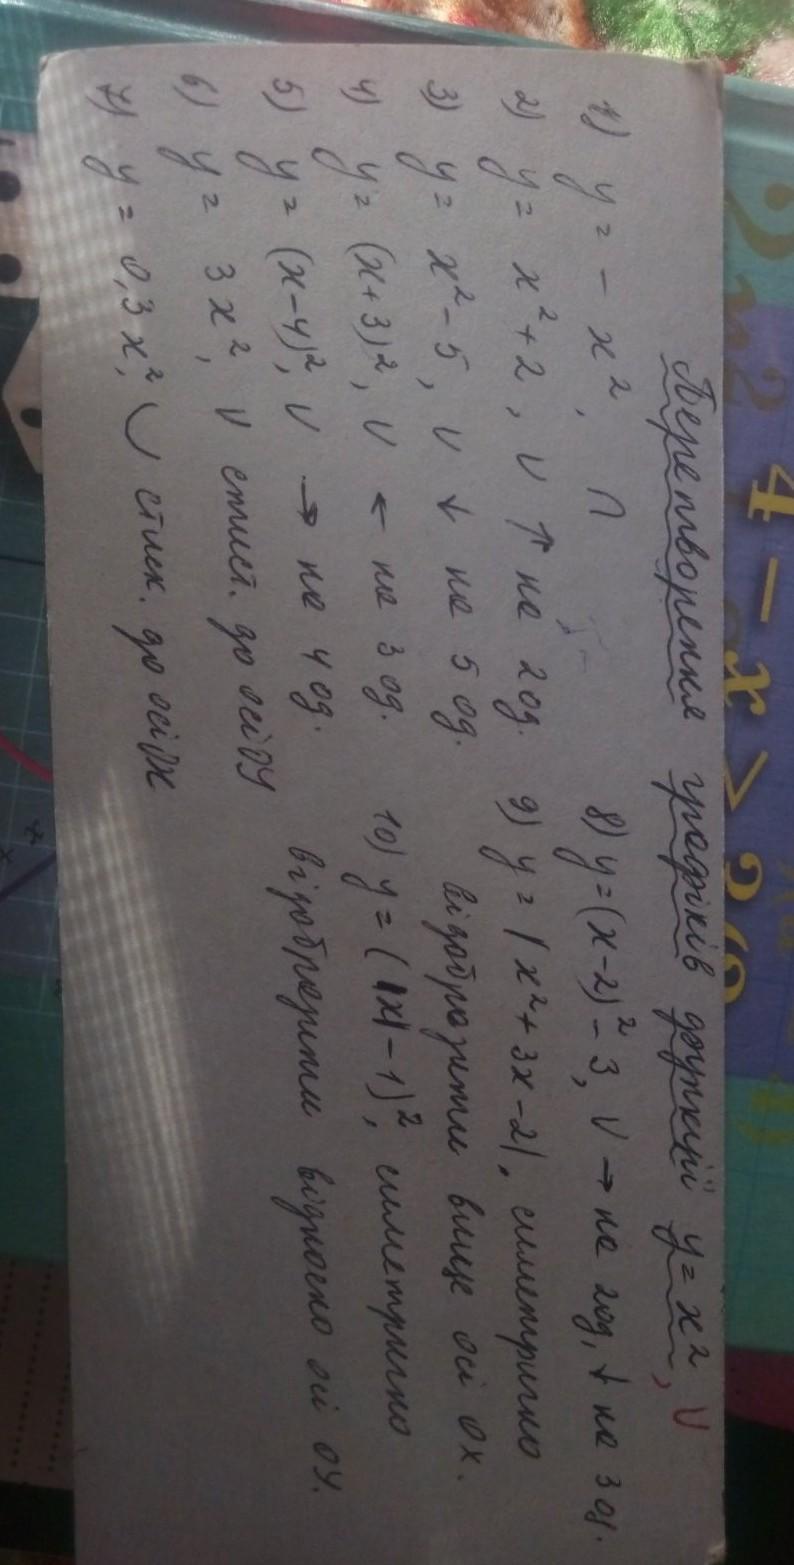 Перетворення графіків функції y = x², ∪
1) y = - x², ∩
2) y = x² + 2, ∪ ↑ на 2од.
3) y = x² - 5, ∪ ↓ на 5 од.
4) y = (x+3)², ∪ ← на 3 од.
5) y = (x-4)², ∪ → на 4 од.
6) y = 3x², ∪ стиск. до осі OY
7) y = 0,3x², ∪ стиск. до осі OX
8) y = (x-2)² - 3, ∪ → на 2од, ↓ на 3 од.
9) y = |x² + 3x - 2|, симетрично
відобразити вище осі OX.
10) y = (|x| - 1)², симетрично
відобразити відносно осі OY.
4 - x >